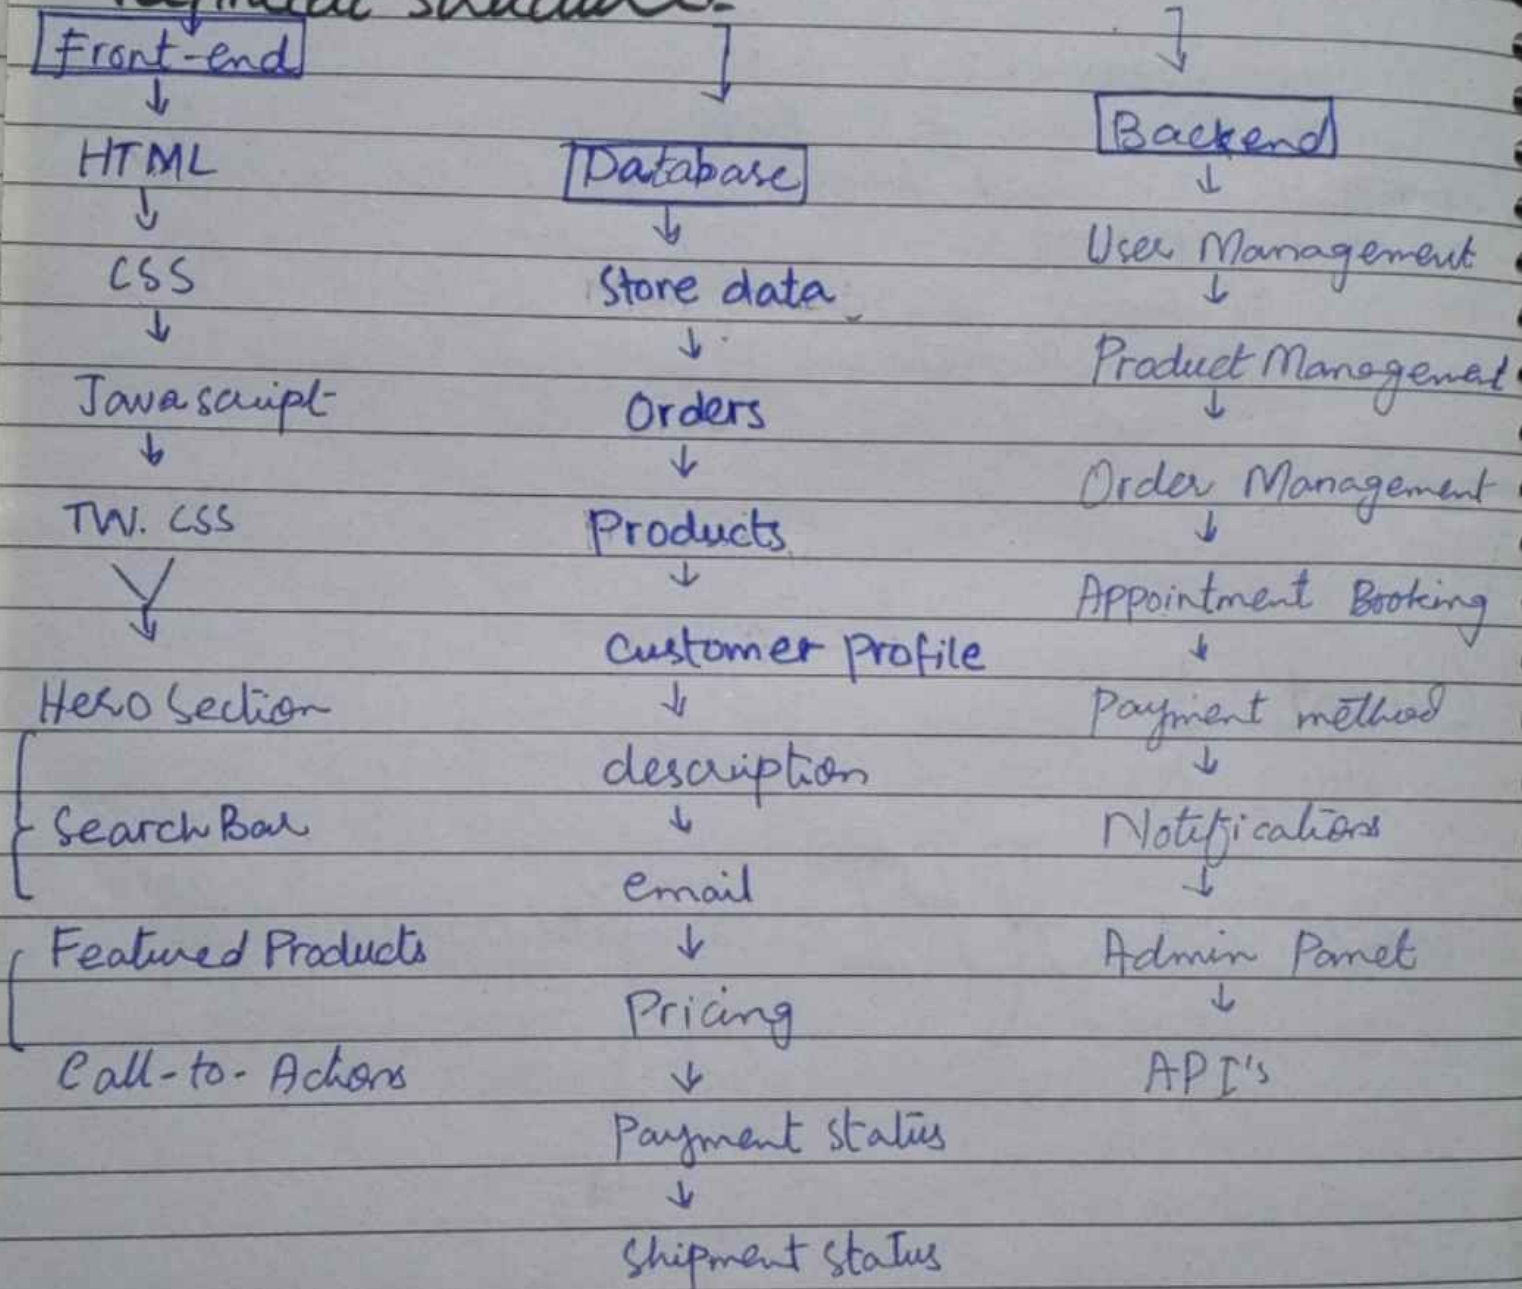 Technical structure:-
Front-end
HTML
CSS
Javascript
TW. CSS
Hero Section
Search Bar
Featured Products
Call-to-Actions
Database
Store data
Orders
Products
Customer Profile
description
email
Pricing
Payment status
Shipment status
Backend
User Management
Product Managemet
Order Management
Appointment Booking
Payment method
Notifications
Admin Panel
API's